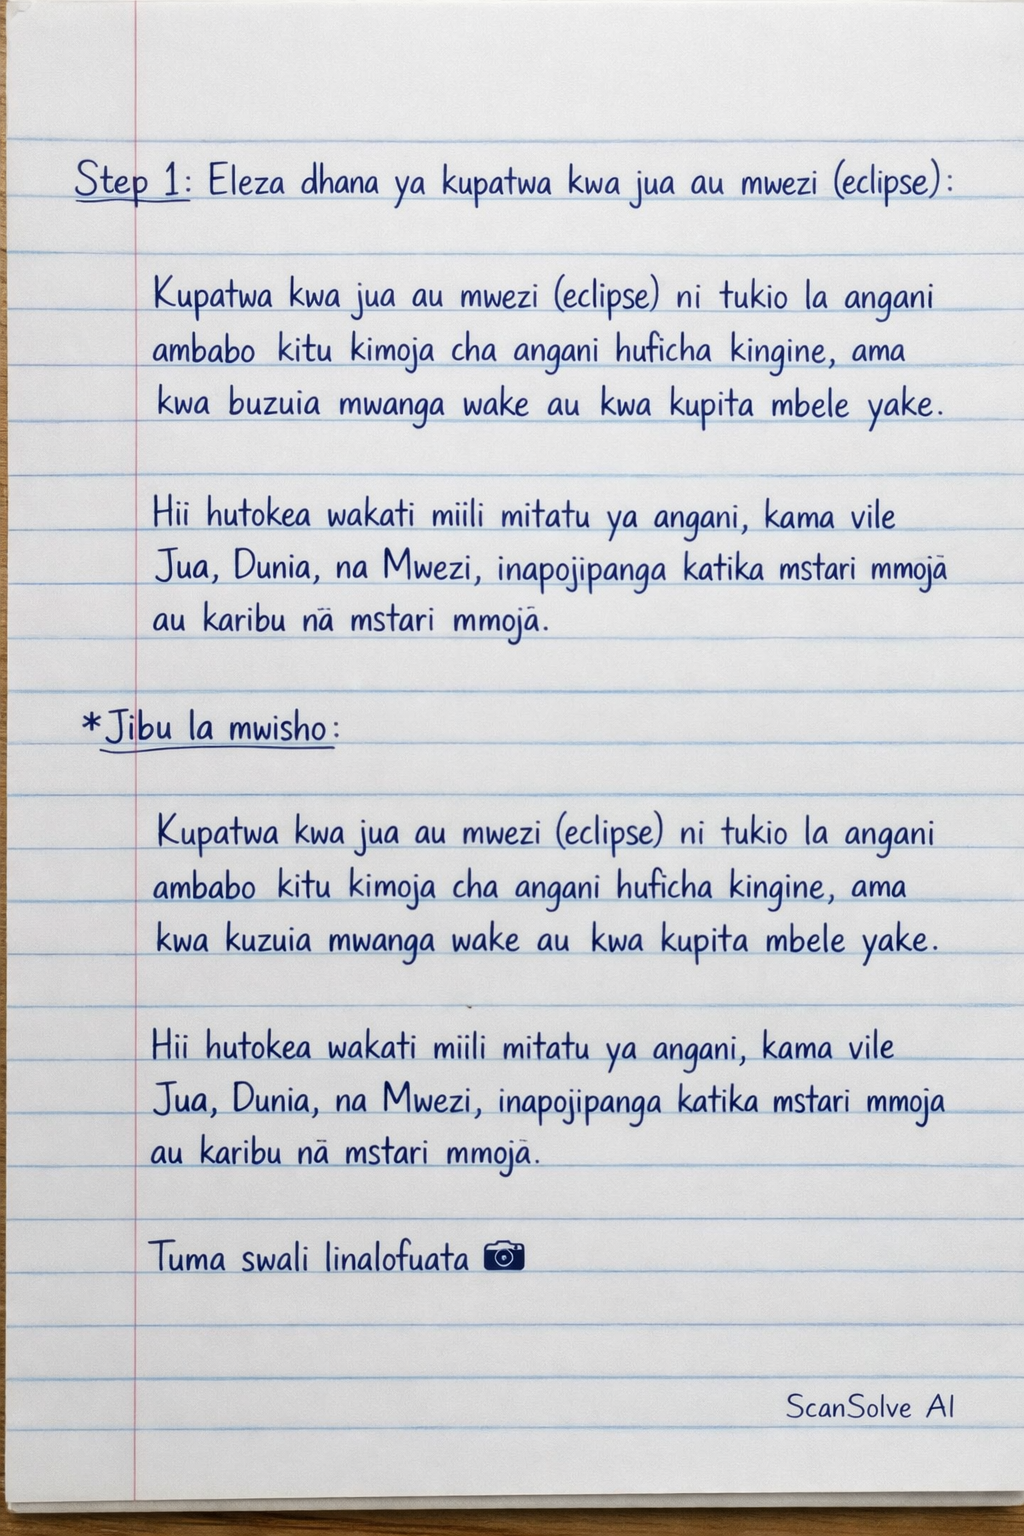 Step 1: Eleza dhana ya kupatwa kwa jua au mwezi (eclipse):
Kupatwa kwa jua au mwezi (eclipse) ni tukio la angani
ambabo kitu kimoja cha angani huficha kingine, ama
kwa buzuia mwanga wake au kwa kupita mbele yake.
Hii hutokea wakati miili mitatu ya angani, kama vile
Jua, Dunia, na Mwezi, inapojipanga katika mstari mmojā
au karibu nā mstari mmojā.
*Jibu la mwisho:
Kupatwa kwa jua au mwezi (eclipse) ni tukio la angani
ambabo kitu kimoja cha angani huficha kingine, ama
kwa kuzuia mwanga wake au kwa kupita mbele yake.
Hii hutokea wakati miili mitatu ya angani, kama vile
Jua, Dunia, na Mwezi, inapojipanga katika mstari mmoja
au karibu nā mstari mmojā.
Tuma swali linalofuata 📷
ScanSolve AI